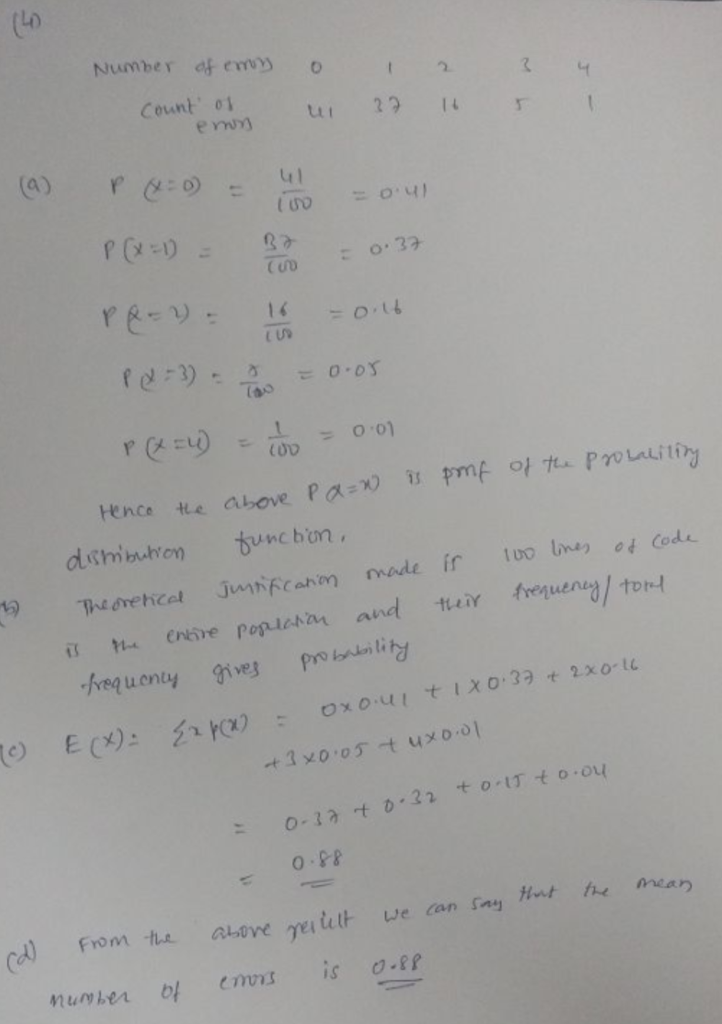 (4)
Number of errors 0 1 2 3 4
Count of errors 41 37 16 5 1
(a) P(X=0) = 41/100 = 0.41
P(X=1) = 37/100 = 0.37
P(X=2) = 16/100 = 0.16
P(X=3) = 5/100 = 0.05
P(X=4) = 1/100 = 0.01
Hence the above P(X=x) is pmf of the probability
distribution function.
(b) Theoretical justification made is 100 lines of code
is the entire population and their frequency/total
frequency gives probability
(c) E(X) = Σxp(x) = 0x0.41 + 1x0.37 + 2x0.16
+3x0.05 + 4x0.01
= 0.37 + 0.32 + 0.15 + 0.04
= 0.88
(d) From the above result we can say that the mean
number of errors is 0.88